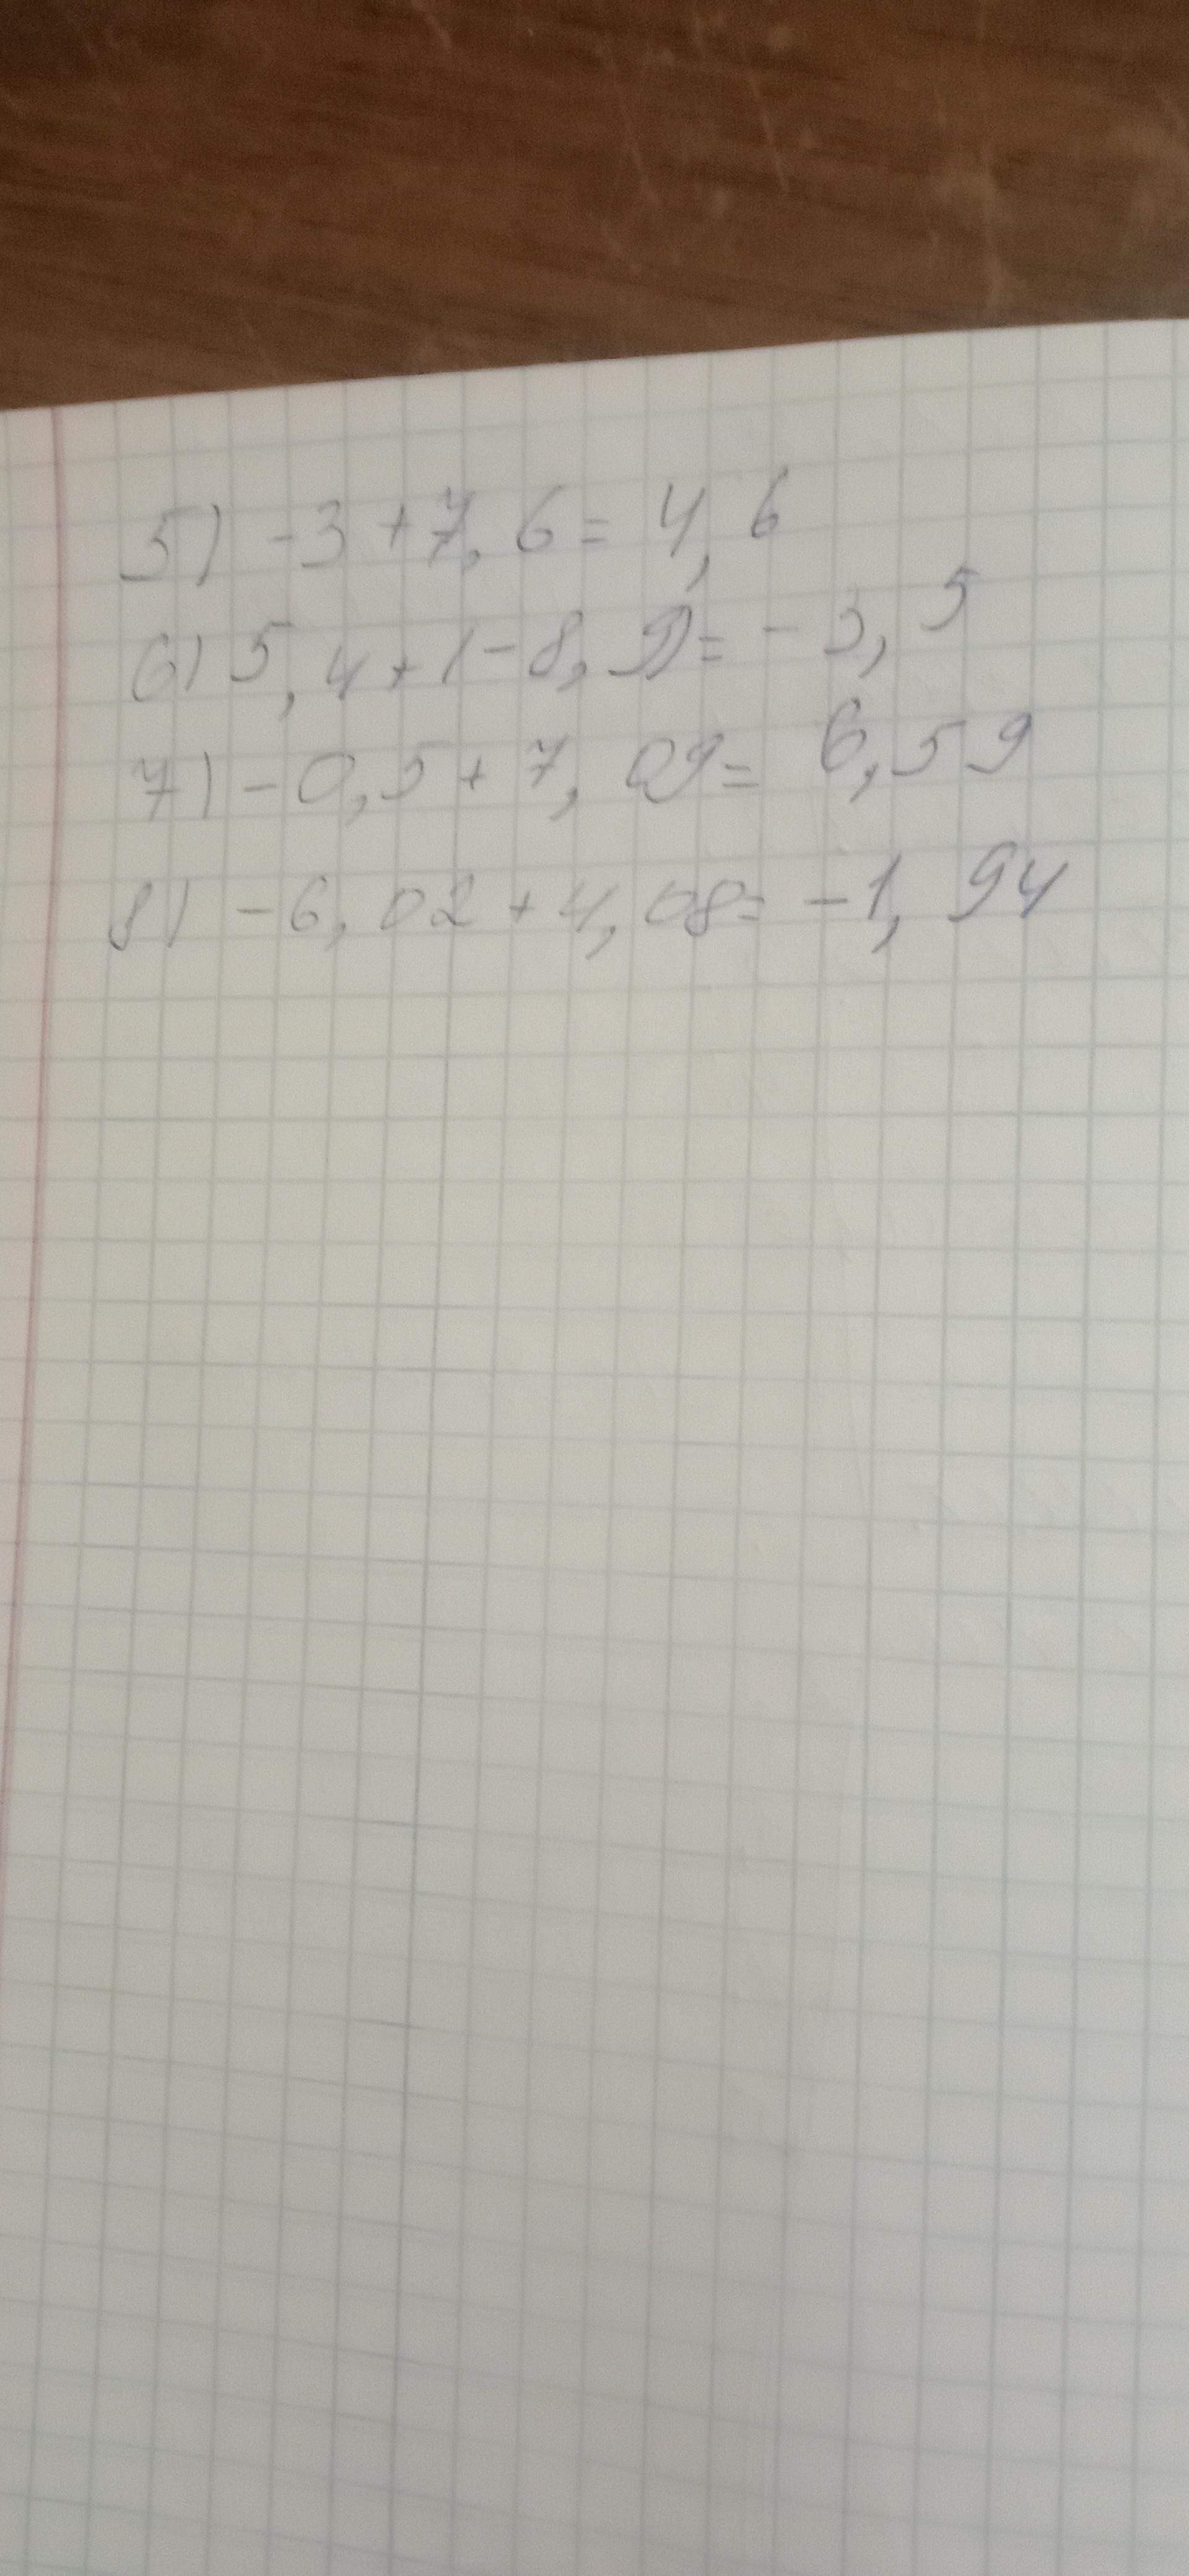 5) -3+7,6=4,6
6) 5,4+(-8,9)=-3,5
7) -0,5+7,09=6,59
8) -6,02+4,08=-1,94